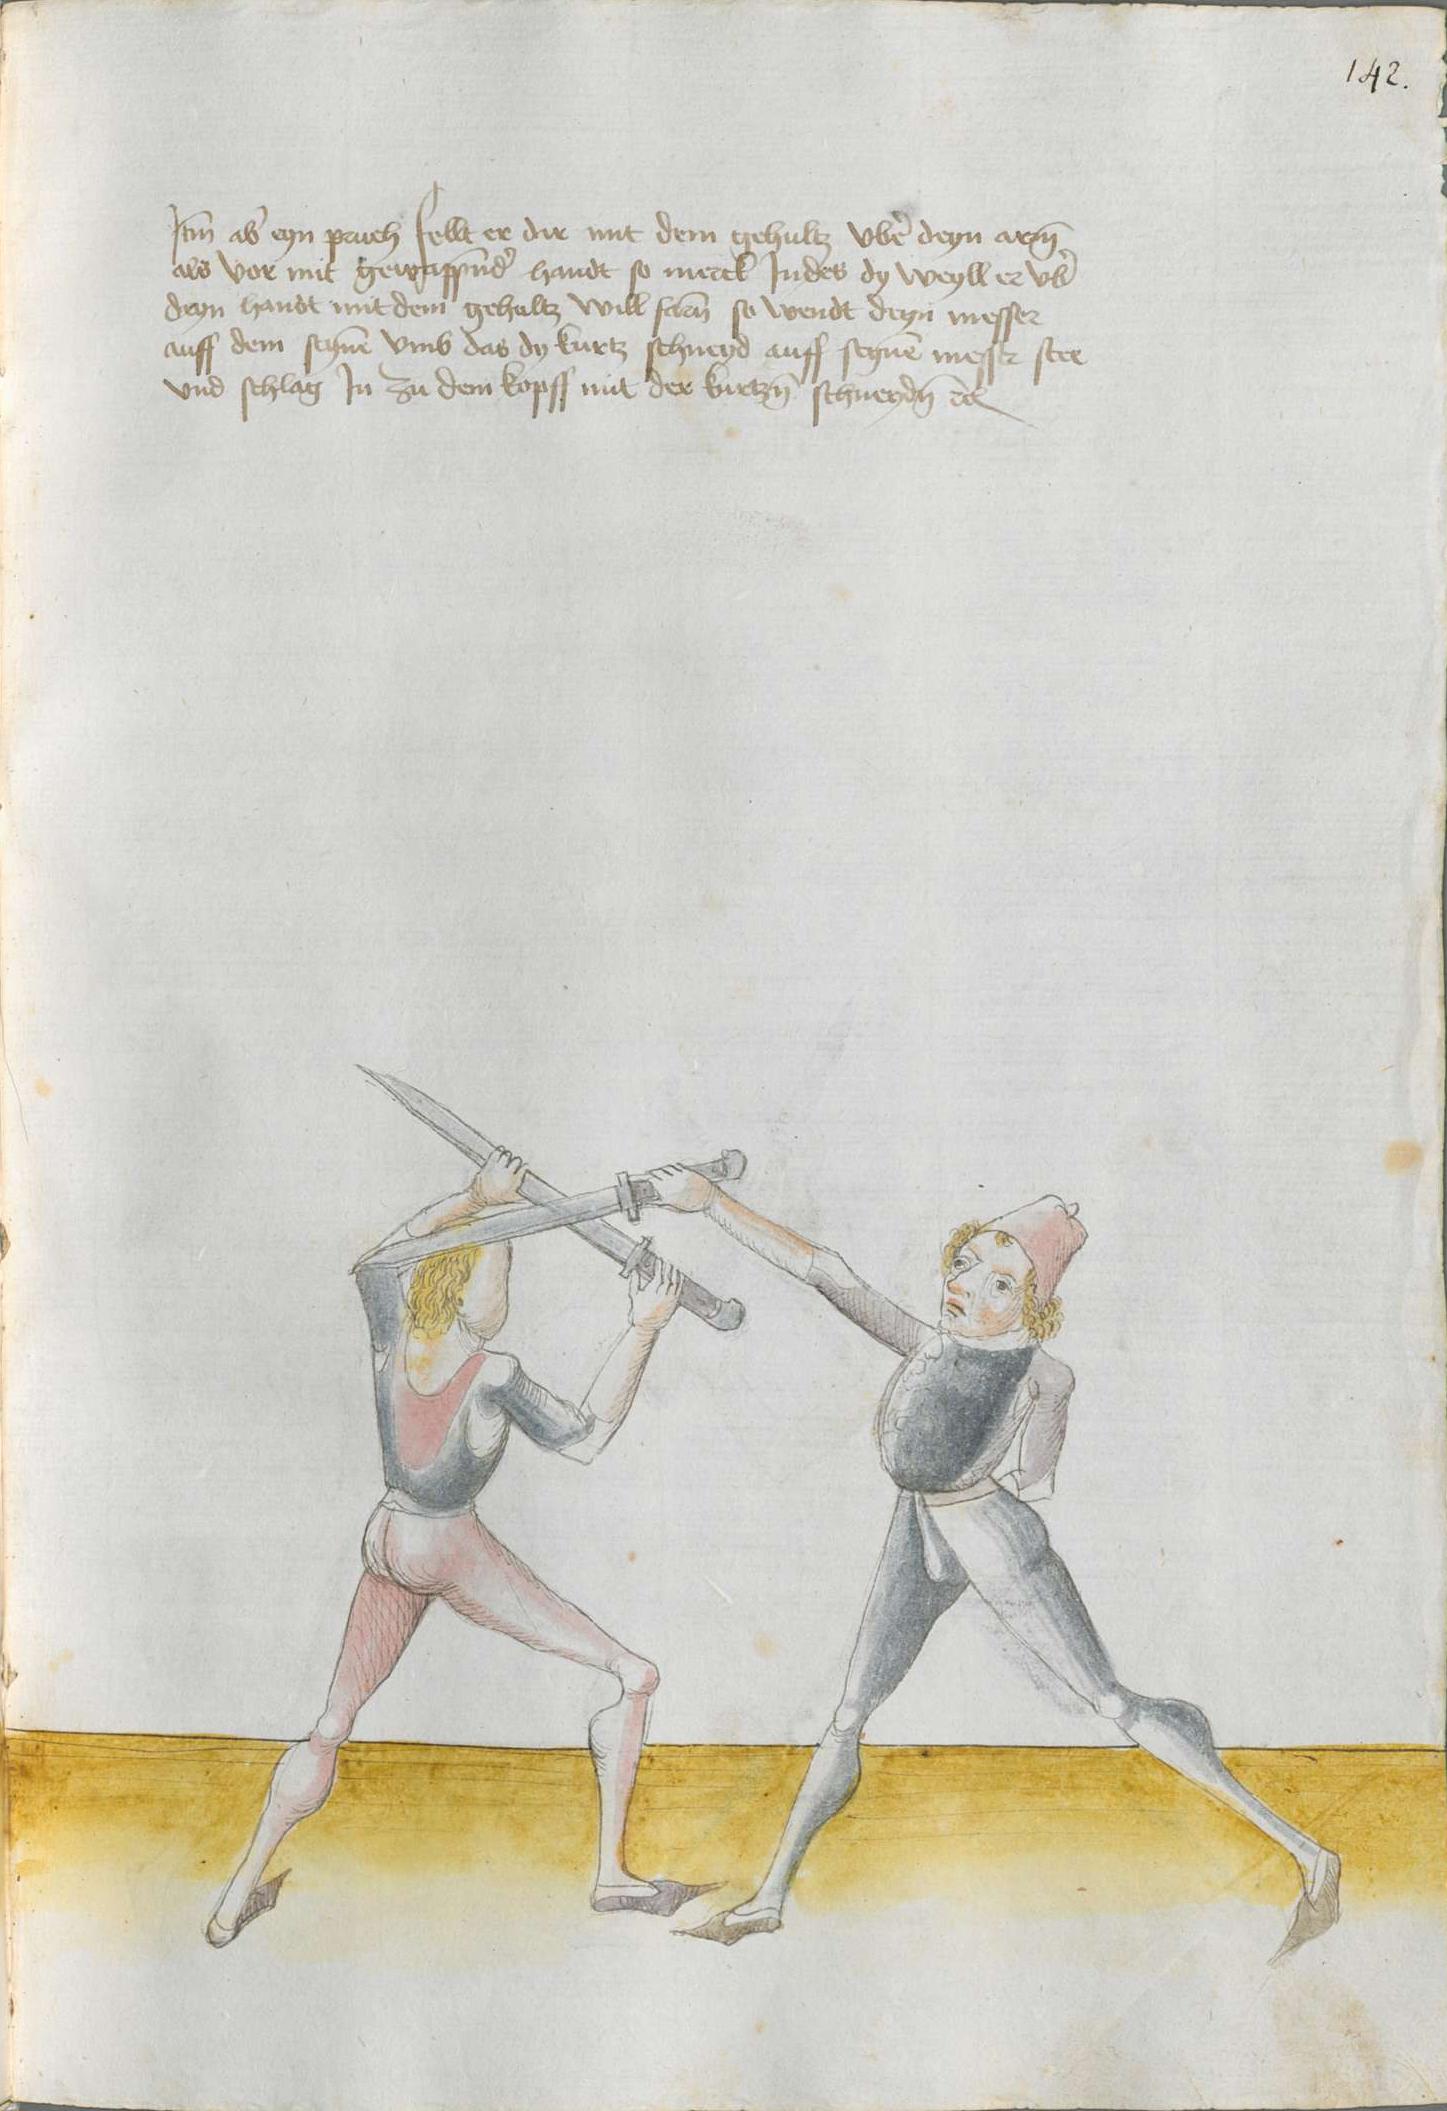 142.
Itm̄ ab̉ eyn pruch fellt er dir mit dem gehultz vbẻ deyn arm̄
als vor mit gewappnd̉ handt so merck Indes dy weyll er vb̉
deyn handt mit dem gehultz will farn̄ so wendt deyn messer
auff dem seynē vmb das dy kurtz schneyd auff seynē messer stee
vnd schlag In zu dem kopff mit der kurtzn̄ schneydn̄ ēc